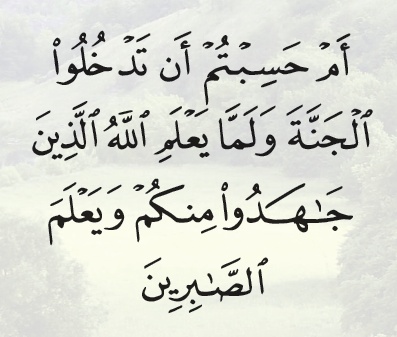 أَمْ حَسِبْتُمْ أَن تَدْخُلُوا۟
ٱلْجَنَّةَ وَلَمَّا يَعْلَمِ ٱللَّهُ ٱلَّذِينَ
جَـٰهَدُوا۟ مِنكُمْ وَيَعْلَمَ
ٱلصَّـٰبِرِينَ